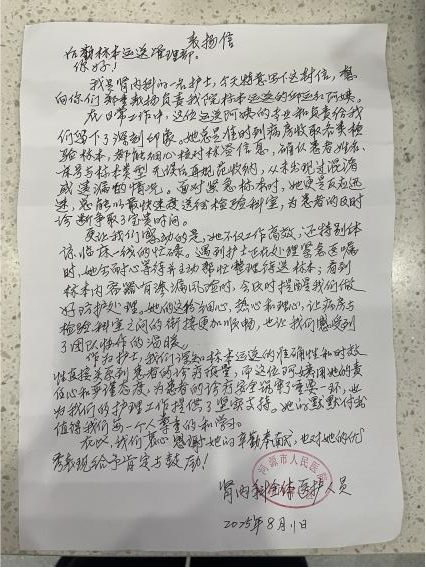 表扬信
后勤标本运送管理部：
你好！
我是肾内科的一名护士，今天特意写下这封信，想
向你们郑重表扬负责我院标本运送的阿姨。
在日常工作中，这位运送阿姨的专业和负责给我
们留下了深刻印象。她总是准时到病房收取各类检
验标本，都能细心核对标签信息，确认患者姓名、
床号与标本类型无误后再规范收纳，从未出现过混淆
或遗漏的情况。面对紧急标本时，她更是反应迅
速，总能以最快速度送往检验科室，为患者的及时
诊断争取了宝贵时间。
更让我们感动的是，她不仅工作高效，还特别体
谅临床一线的忙碌。遇到护士正在处理紧急医嘱
时，她会耐心等待并主动帮忙整理待送标本；看到
标本内容器有渗漏风险时，会及时提醒我们做
好防护处理。她的这份细心、热心和理心，让病房与
检验科室之间的衔接更加顺畅，也让我们感受到
了团队协作的温暖。
作为护士，我们深知标本运送的准确性和时效
性直接关系到患者的诊疗质量，而这位阿姨用她的责
任心和严谨态度，为患者的诊疗安全筑牢了重要一环，也
为我们的护理工作提供了坚实支持。她的默默付出
值得我们每一个人尊重和学习。
在此，我们衷心感谢她的辛勤奉献，也对她的优
秀表现给予肯定与鼓励！
河源市人民医院
肾内科全体医护人员
2025年8月11日